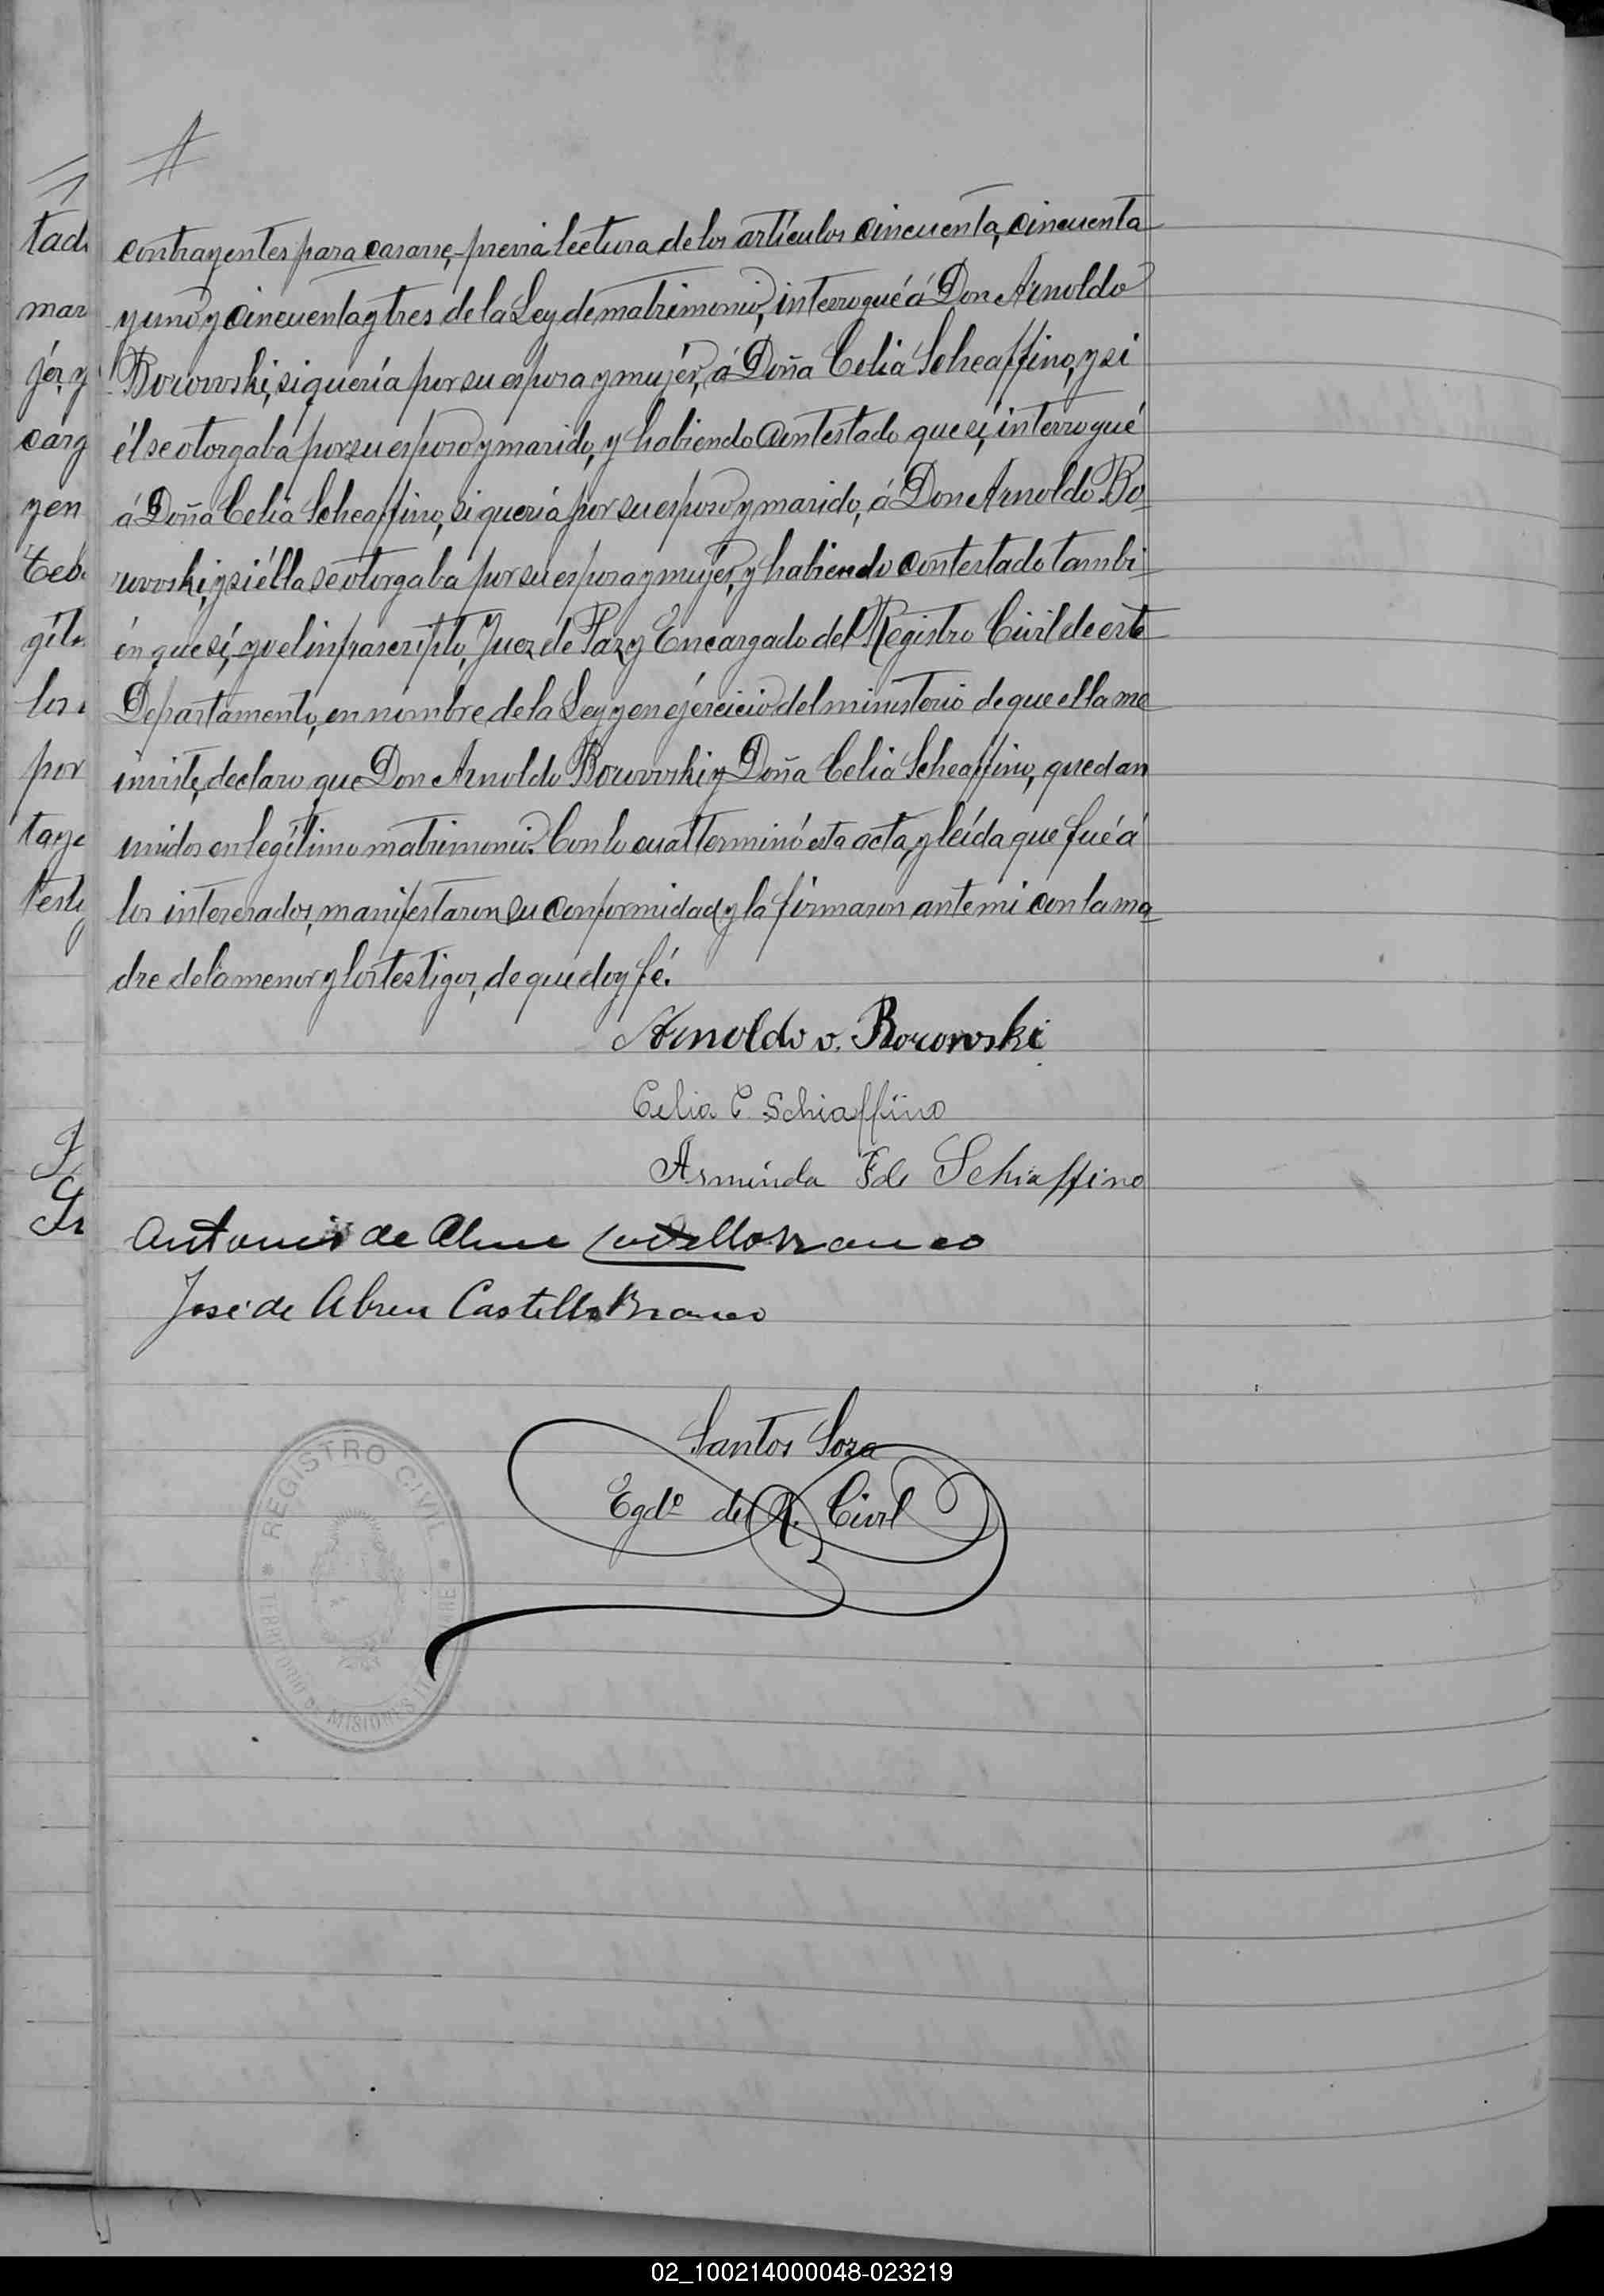 contrayentes para casarse, previa lectura de los artículos cincuenta, cincuenta
y uno y cincuenta y tres de la Ley de matrimonio, interrogué á Don Arnoldo
Borowski, si quería por su esposa y mujér, á Doña Celia Scheaffino, y si
él se otorgaba por su esposo y marido, y habiendo contestado que sí, interrogué
á Doña Celia Scheaffino, si quería por su esposo y marido, á Don Arnoldo Bo-
rowski, y si élla se otorgaba por su esposa y mujér, y habiendo contestado tambi-
én que sí, yo el infrascripto, Juez de Paz y Encargado del Registro Civil de este
Departamento, en nombre de la Ley y en ejércicio del ministerio de que ella me
inviste, declaro que Don Arnoldo Borowski y Doña Celia Scheaffino, quedan
unidos en legítimo matrimonio. Con lo cual terminó esta acta, y leída que fué á
los interesados, manifestaron su conformidad y la firmaron ante mi con la ma-
dre de la menor y los testigos, de que doy fé.
Arnoldo v. Borowski
Celia C. Schiaffino
Arminda F de Schiaffino
Antonio de Abreu Castello Branco
José de Abreu Castello Branco
Santos Soza
Egdo del R. Civil
REGISTRO CIVIL
TERRITORIO DE MISIONES
tad
mar
jér, y
carg
y en
los
por
testi
02_100214000048-023219